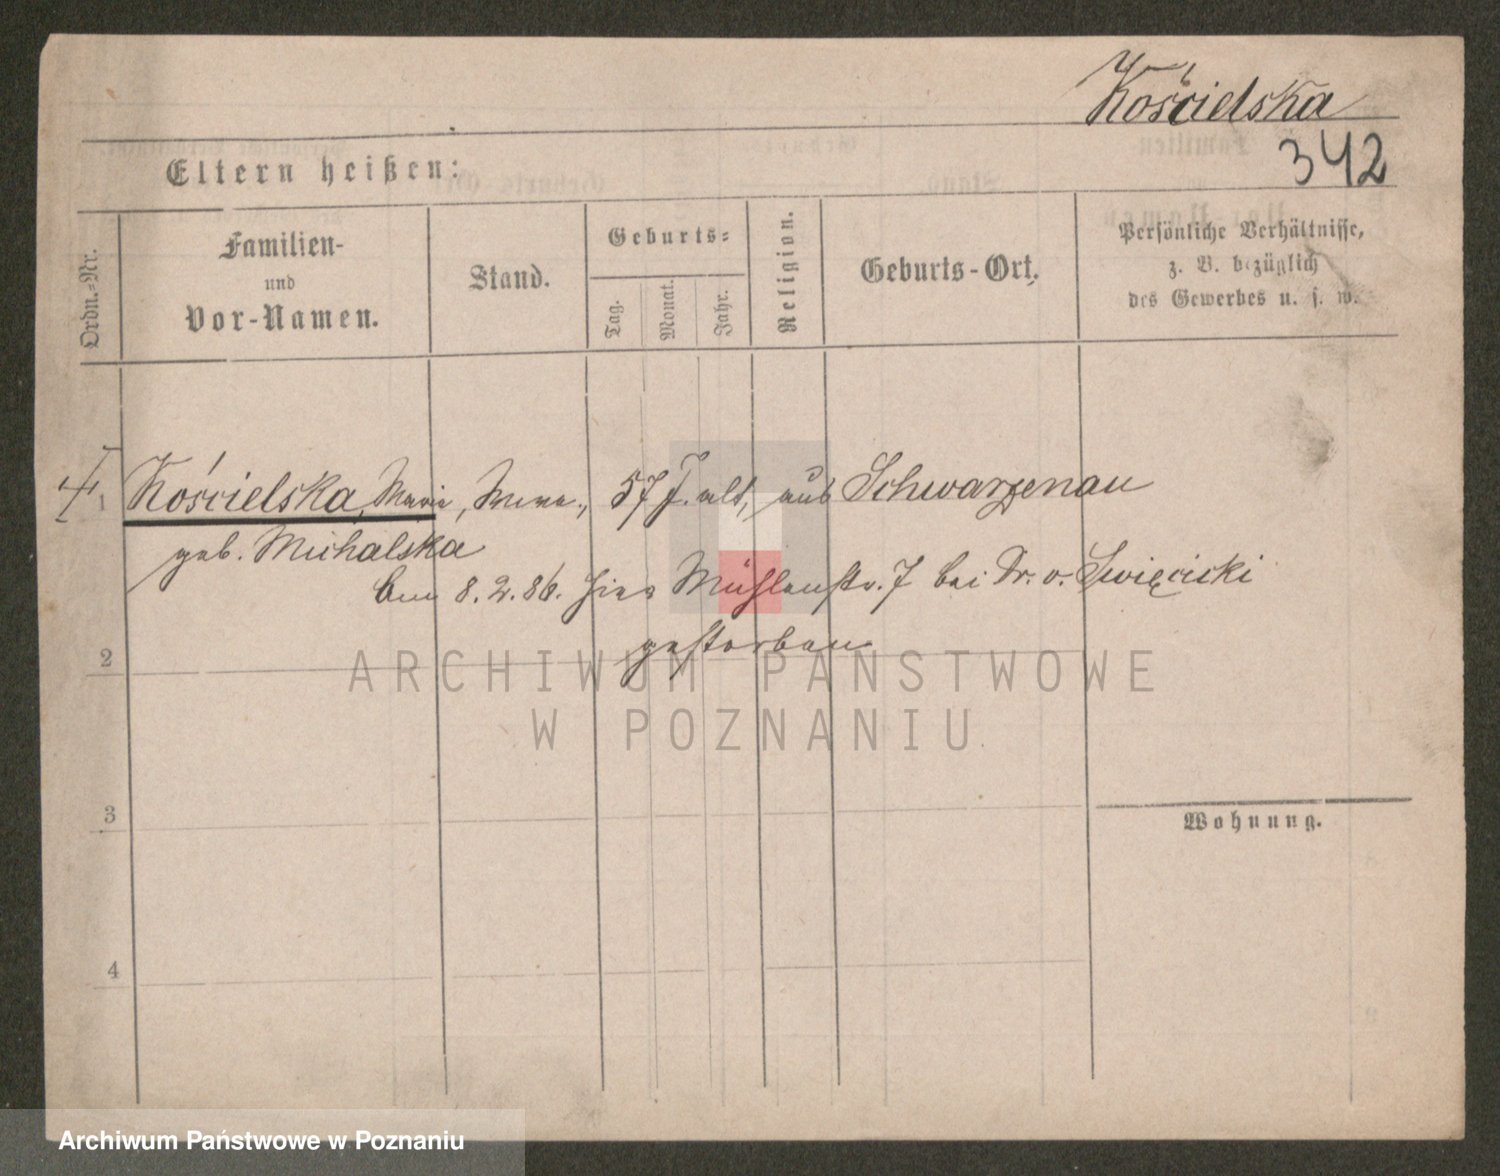 Kościelska
342
Eltern heißen:
Ordn.-Nr.
Familien-
und
Vor-Namen.
Stand.
Geburts-
Tag.
Monat.
Jahr.
Religion.
Geburts-Ort.
Persönliche Verhältnisse,
z. B. bezüglich
des Gewerbes u. s. w.
1 Kościelska, Marie, 57 J. alt, aus Schwarzenau
geb. Michalska
am 8.2.86. hier Mühlenstr. 7 bei Dr. v. Święcicki
gestorben
2
ARCHIWUM PAŃSTWOWE
W POZNANIU
3
Wohnung.
4
Archiwum Państwowe w Poznaniu